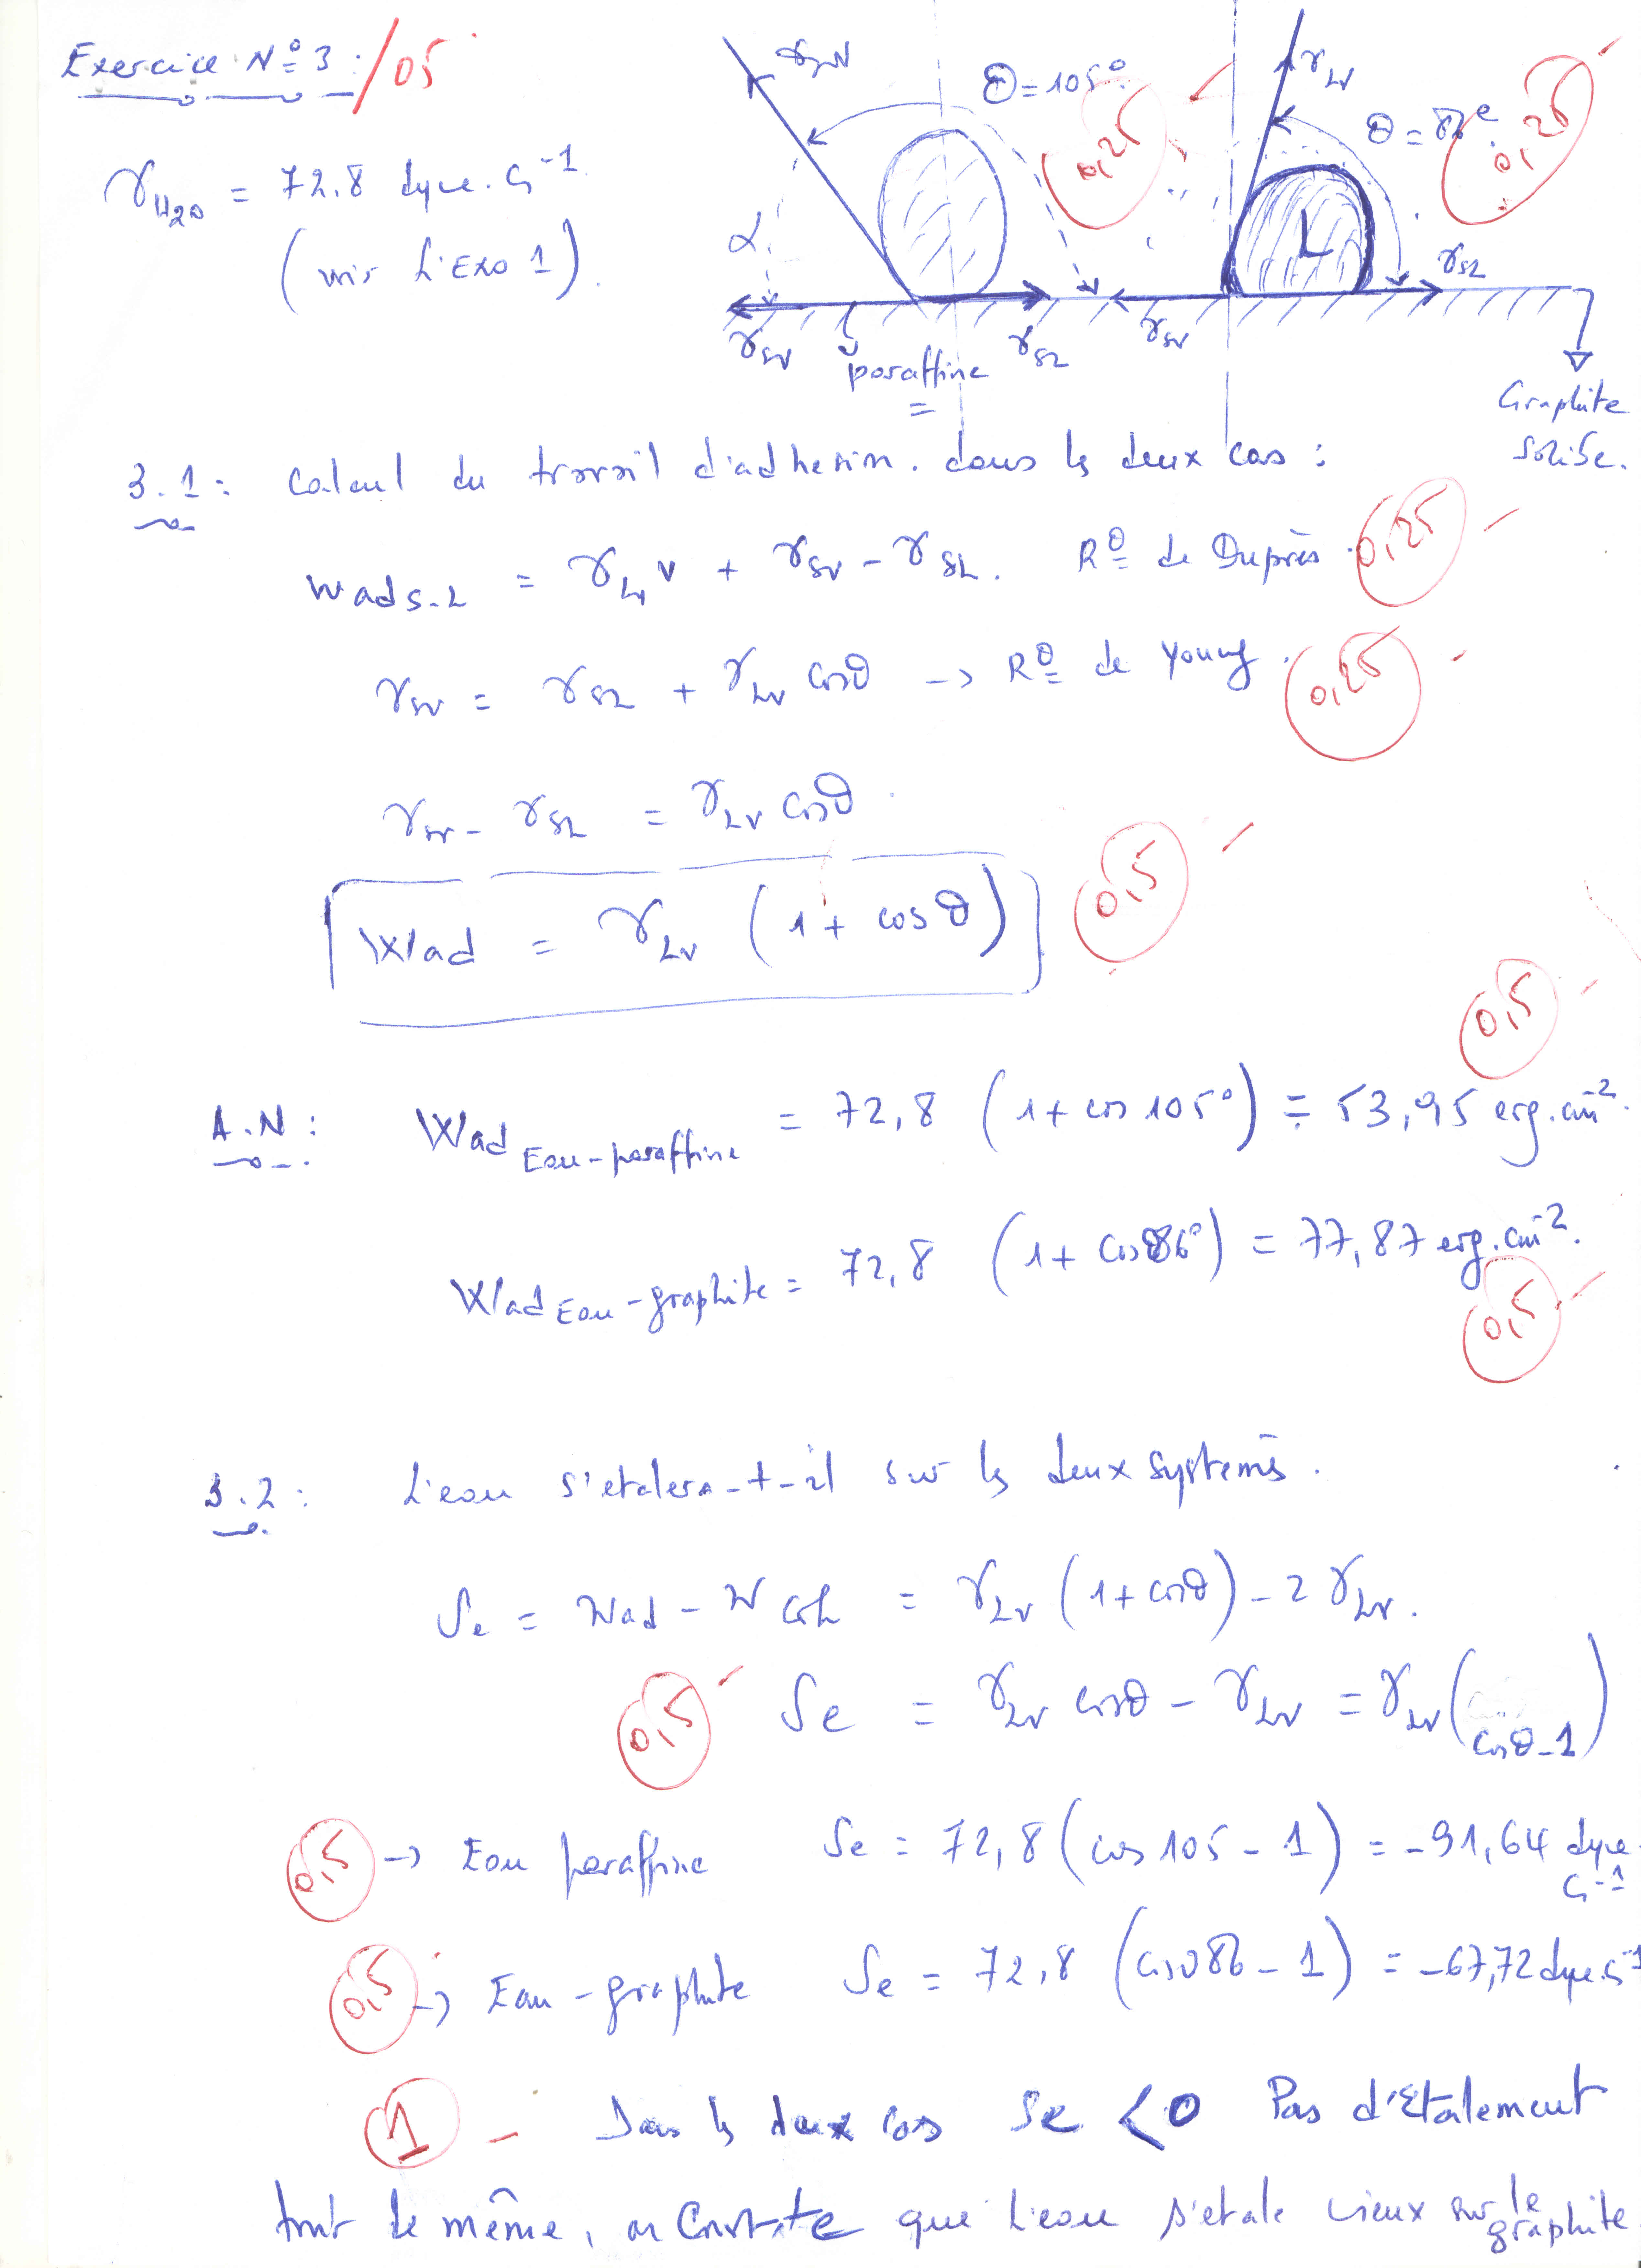 Exercice N° 3 : /05
γH2O = 72.8 dyne.cm-1
(voir L'Exo 1).
γLV
θ = 105°
0,25
α
γSV
γSL
paraffine
γLV
0,25
L
γSL
γSV
Graphite
solide.
3.1: Calcul du travail d'adhesion. dans les deux cas :
Wad S-L = γLV + γSV - γSL. Rº de Duprès. 0,25
γSV = γSL + γLV cosθ → Rº de Young. 0,25
γSV - γSL = γLV cosθ
Wad = γLV (1 + cosθ) 0,5
0,5
A.N: Wad Eau-paraffine = 72,8 (1+cos 105°) = 53,95 erg.cm-2.
Wad Eau-graphite = 72,8 (1+ cos86°) = 77,87 erg.cm-2.
0,5
3.2: L'eau s'etalera-t-il sur les deux systemes.
Se = Wad - Wcoh = γLV (1+cosθ) - 2 γLV.
0,5 Se = γLV cosθ - γLV = γLV (cosθ-1)
0,5 → Eau paraffine Se = 72,8 (cos 105 - 1) = -91,64 dyne.cm-1
0,5 → Eau-graphite Se = 72,8 (cos 86 - 1) = -67,72 dyne.cm-1
1 - Dans les deux cas Se < 0 Pas d'Etalement
tout de même, on Constate que l'eau s'etale mieux sur le graphite